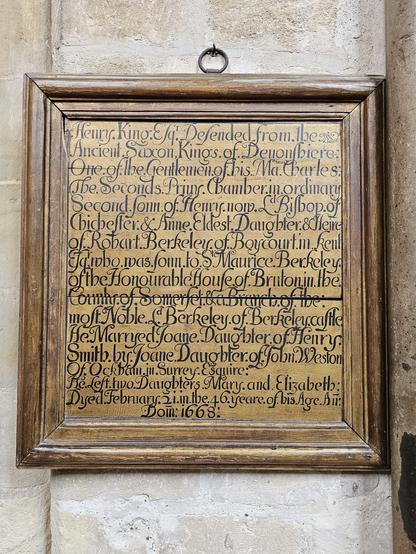 Henry. King. Esqr. Desended from. the
Ancient. Saxon. Kings. of. Devonshiere:
One. of. the. Gentlemen. of his. Ma. Charles:
The. Seconds. Privy. Chamber. in. ordinary
Second sonn. of. Henry. now. Ld. Bishop. of
Chichester. & Anne. Eldest. Daughter. & Heire
of. Robart. Berkeley. of Boycourt. in. kent
Esq. who. was. sonn. to. Sr. Maurice. Berkeley.
of the Honourable House of. Bruton. in. the
County. of. Somerset. & a Branch. of the:
most. Noble. Ld. Berkeley. of Berkeley. castle
He. Marryed. Joane. Daughter. of Henry.
Smith. by. Joane. Daughter. of John. Weston
Of. Ockham. in. Surrey. Esquire:
He. Left. two. Daughters. Mary. and. Elizabeth:
Dyed. February. 21. in. the. 46. yeare. of his. Age. An:
Dom: 1668: